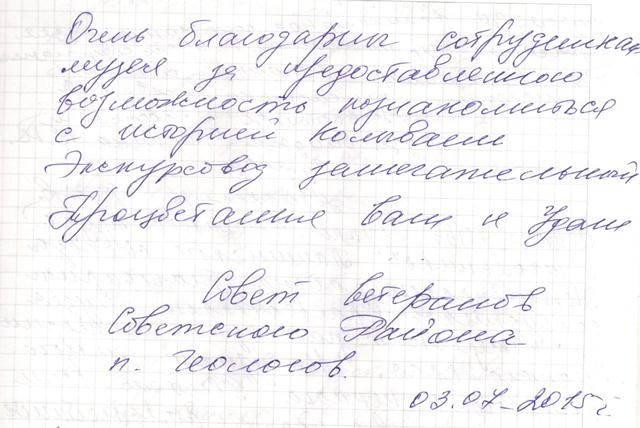 Очень благодарны сотрудникам
музея за предоставленного
возможность познакомиться
с историей Колывани
Экскурсовод замечательный
Процветания вам и Удачи
Совет ветеранов
Советского Района
п. Геологов.
03.07-2015г